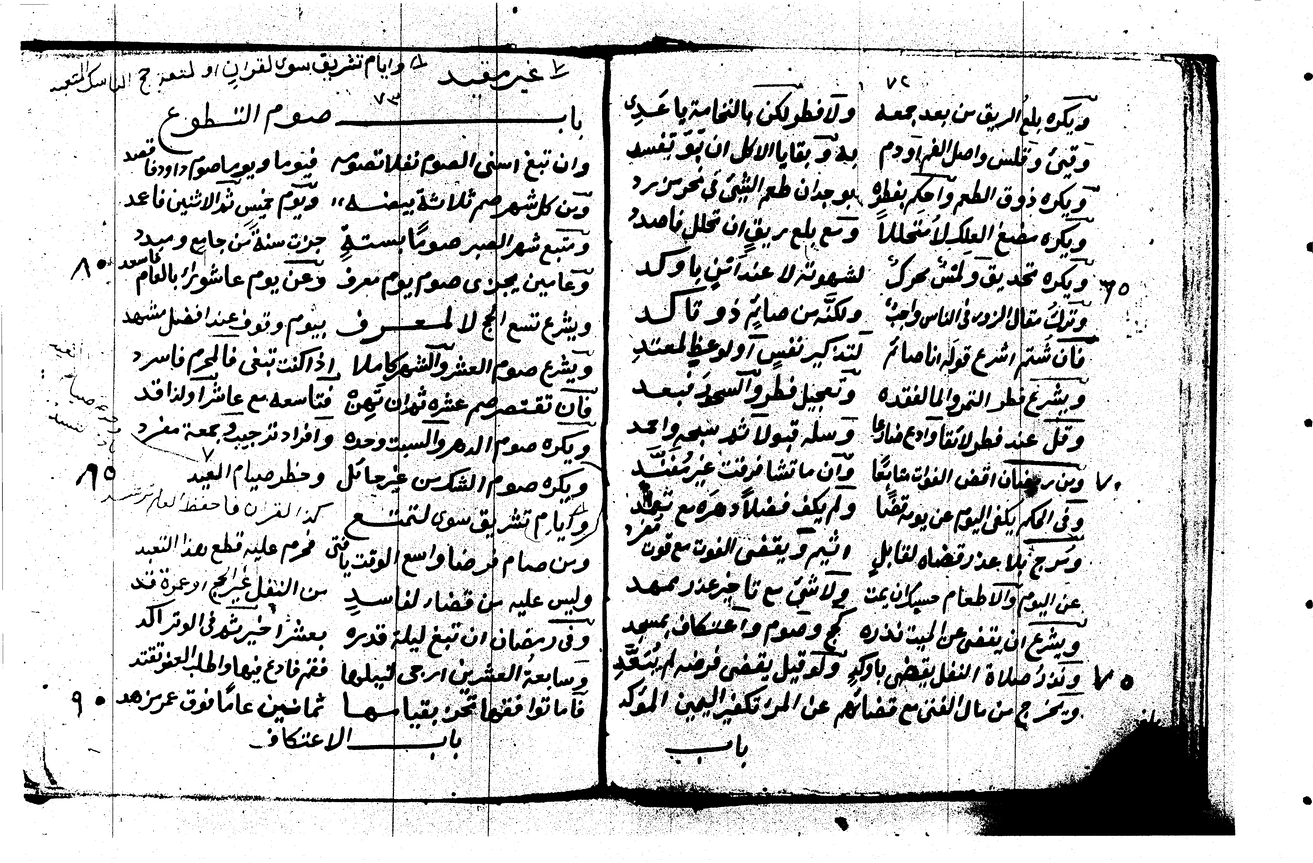 ٧٢
ويكره بلع الريق من بعد جمعه ولا فطر لكن بالنخامة يا عدي
وقيئ وقلس واصل الفم أو دم به وبقايا الاكل ان يقو تفسد
ويكره ذوق الطعم واحكم بفطره بوجدان طعم الشيئ في نحر مزرد
ويكره مضغ العلك لا متحللا ومع بلع ريق ان تحلل فاصدد
ويكره تحديق ولمس محرك لشهوته لا عند أمن باوكد
٦٥
وترك مقال الزور في الناس واجب ولكنه من صائم ذو تاكد
فان شتم اشرع قوله انا صائم لتذكير نفس او لوعظ لمعتد
ويشرع فطر التمر والما لفقده وتعجيل فطر والسحور فبعد
وقل عند فطر لائقا وادع ضارعا وسله قبولا ثم سبحه واحمد
ومن رمضان اقض الفوت متابعا وان ما تشا فرقت غير مفند
٧٠
وفي الحكم يكفي اليوم عن يومه قضا ولم يكف فضلا دهره مع تعمد
ومرج بلا عذر قضاه لقابل اثيم ويقضي الفوت مع قوت مفرد
عن اليوم والاطعام حسب ان يمت ولا شيئ مع تاخير عذر ممهد
ويشرع ان يقضى عن الميت نذره كحج وصوم واعتكاف بمسجد
ونذر صلاة النفل يقضى باوكد ولو قيل يقضى فرضه لم يبعد
٧٥
ويخرج من مال الفتى مع قضائهم عن المرء تكفير اليمين المؤكد
باب
غير مقيد
وايام تشريق سوى لقران او لمتعة حج
٧٣
باب صوم التطوع
وان تبغ اسنى الصوم نفلا تصومه فيوما ويوما صوم داود فاقصد
ومن كل شهر صم ثلاثة بيضه ويوم خميس ثم الاثنين فاعد
ومتبع شهر الصبر صوما بستة جزت سنة من جامع ومبدد
وعامين يجزى صوم يوم معرف وعن يوم عاشوراء بالعام فاسعد
٨٠
ويشرع تسع الحج لا لمعرف بيوم وقوف عند افضل مشهد
ويشرع صوم العشر والشهر كاملا اذا كنت تبغي فالمحرم فاسرد
فان تقتصر صم عشره ثم ان تهن فتاسعه مع عاشرا ولذا قد
ويكره صوم الدهر والسبت وحده وافراد ترجيب وجمعة مفرد
ويكره صوم الشك من غير حائل وحظر صيام العيد
٨٥
وايام تشريق سوى لتمتع كذا القران فاحفظ العلم ترشد
ومن صام فرضا واسع الوقت يافتى فحرم عليه قطع هذا التعبد
وليس عليه من قضاء لفاسد من النفل غير الحج او عمرة قد
وفي رمضان ان تبغ ليلة قدره بعشر اخير ثم في الوتر اكد
وسابعة العشرين ارجى لنيلها فقم فادع فيها واطلب العفو تقتد
فاما توافقها تحز بقيامها ثمانين عاما فوق عمر يزهد
٩٠
باب الاعتكاف